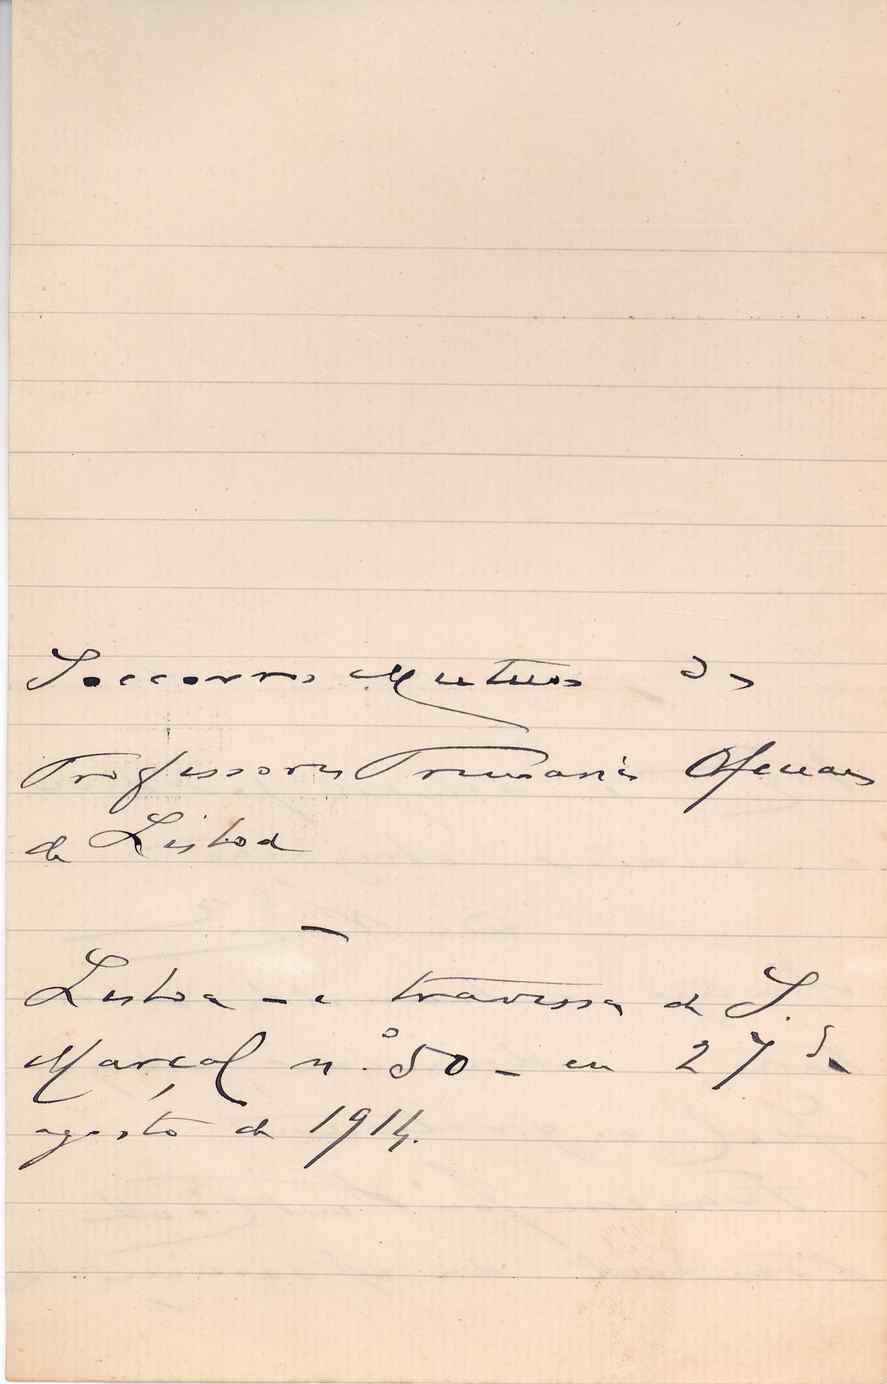 Soccorros Mutuos dos
Professores Primarios Oficiaes
de Lisboa
Lisboa - á travessa de S.
Marçal n.º 50 - em 27 de
agosto de 1914.